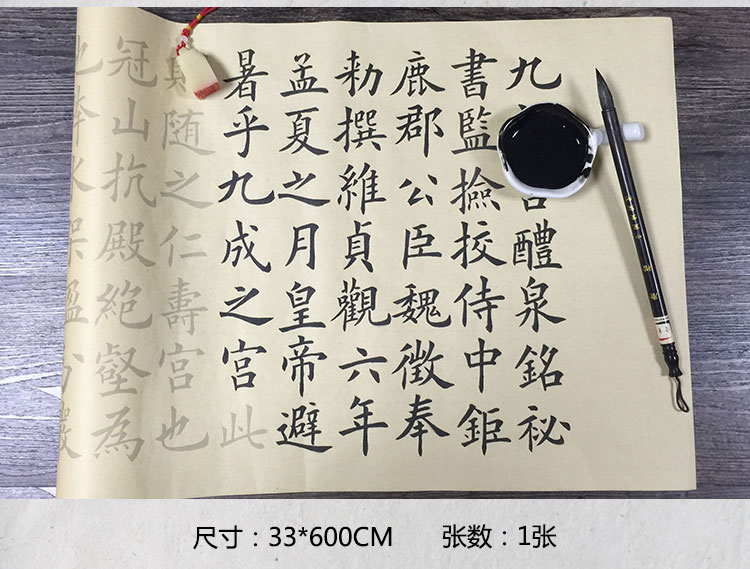 九醴泉銘祕
書監撿挍侍中鉅
鹿郡公臣魏徵奉
勑撰維貞觀六年
孟夏之月皇帝避
暑乎九成之宮此
随之仁壽宮也
冠山抗殿絕壑為
尺寸：33*600CM 张数：1张